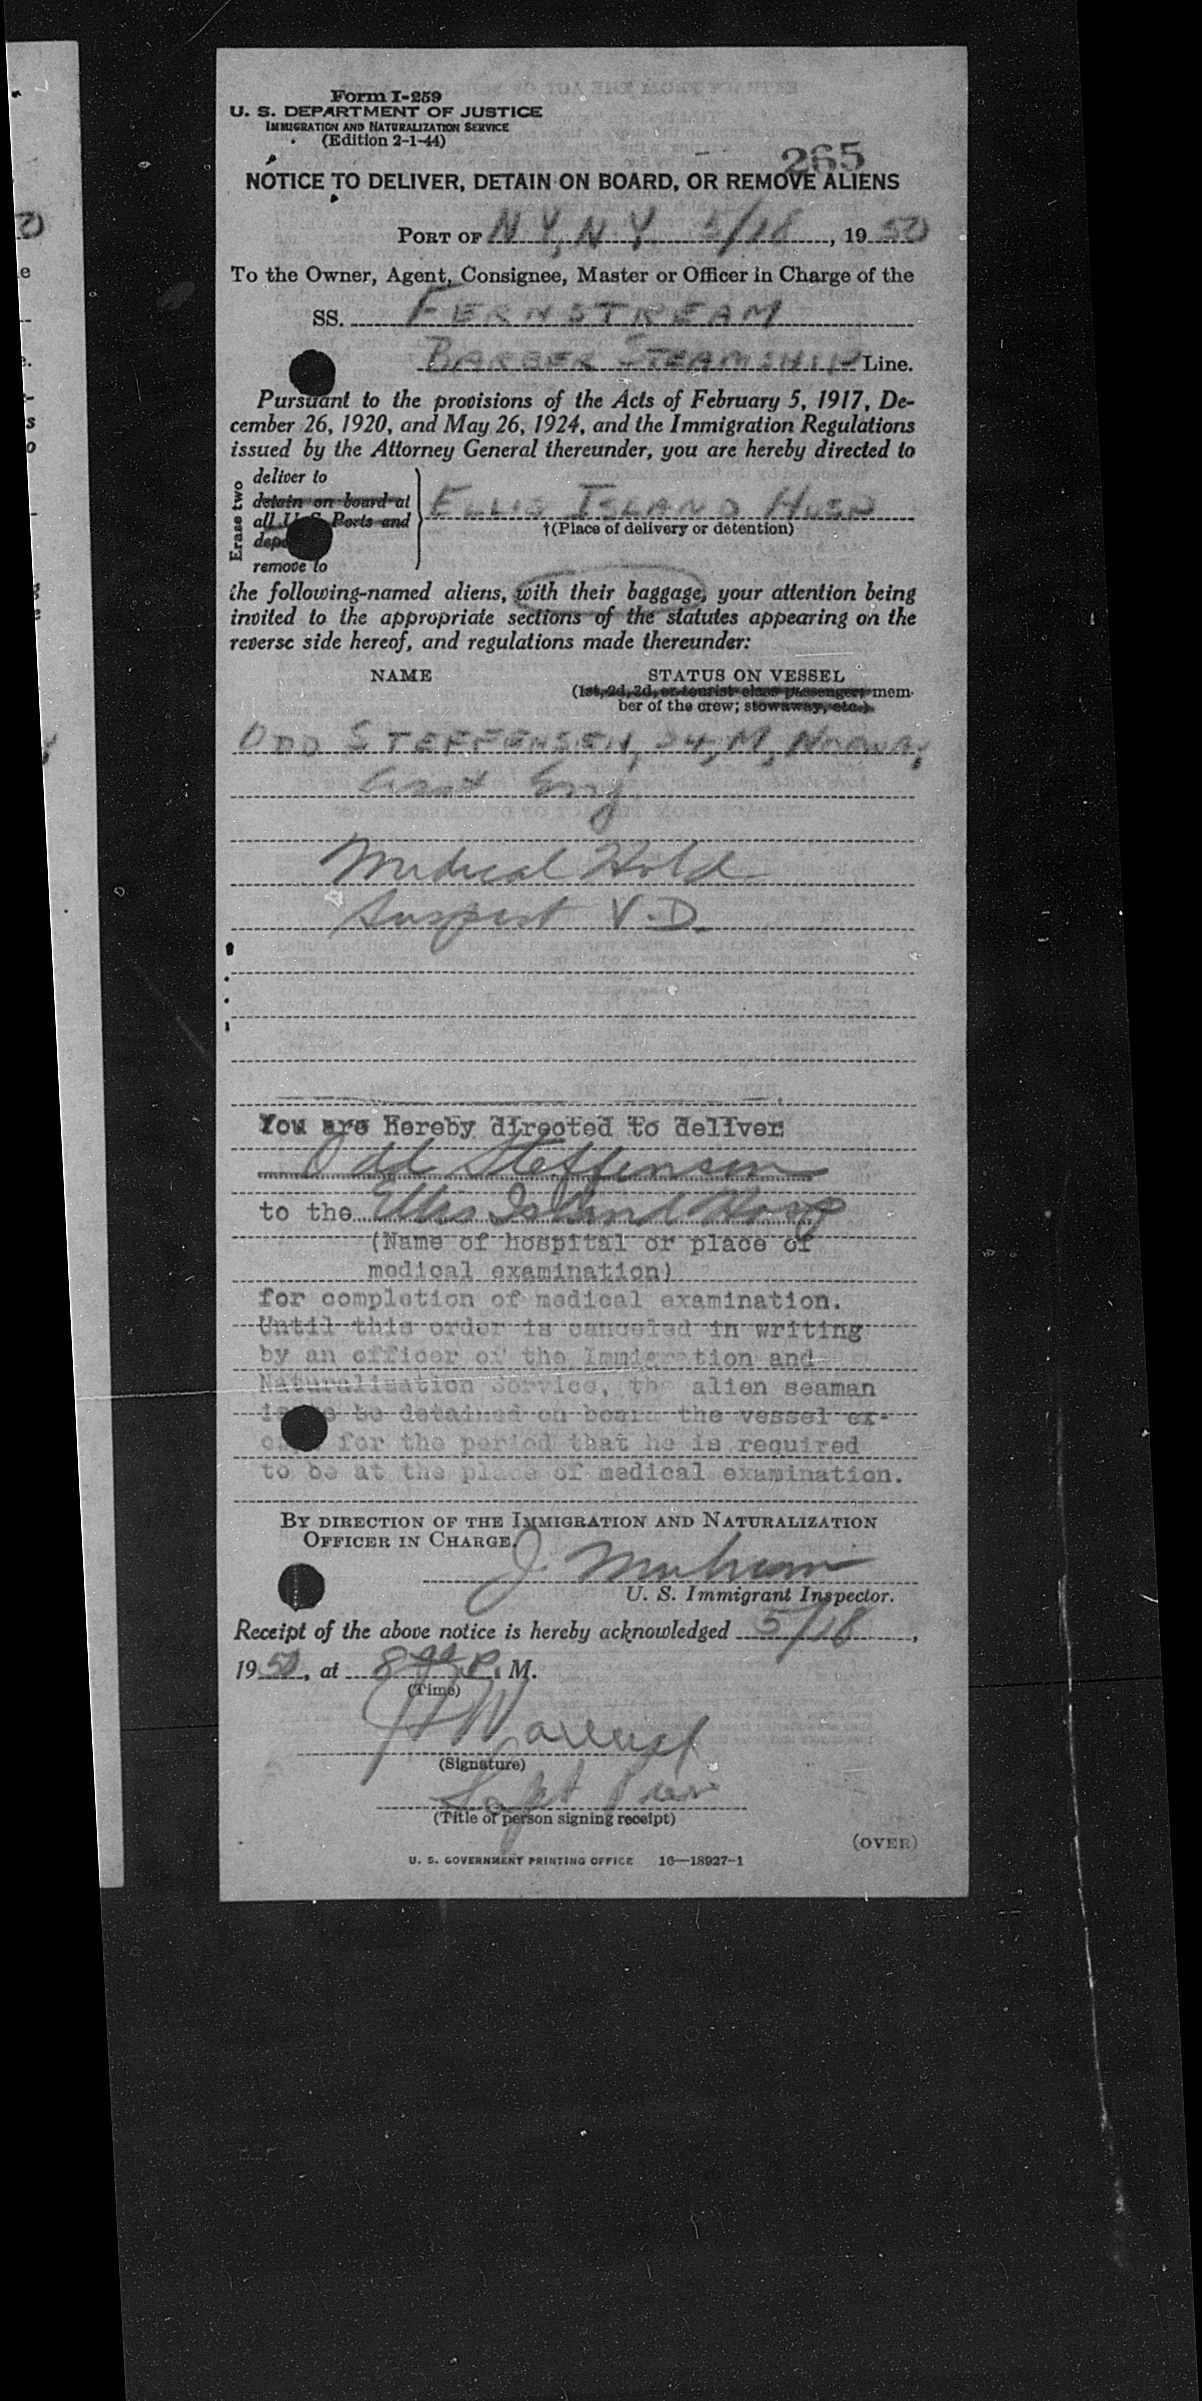 Form I-259
U. S. DEPARTMENT OF JUSTICE
IMMIGRATION AND NATURALIZATION SERVICE
(Edition 2-1-44)
265
NOTICE TO DELIVER, DETAIN ON BOARD, OR REMOVE ALIENS
PORT OF N Y, N Y, 5/18, 1950
To the Owner, Agent, Consignee, Master or Officer in Charge of the
SS. FERNSTREAM
BARBER STEAMSHIP Line.
Pursuant to the provisions of the Acts of February 5, 1917, De-
cember 26, 1920, and May 26, 1924, and the Immigration Regulations
issued by the Attorney General thereunder, you are hereby directed to
Erase two
deliver to
detain on board at
all U. S. Ports and
remove to
ELLIS ISLAND HOSP
†(Place of delivery or detention)
the following-named aliens, with their baggage, your attention being
invited to the appropriate sections of the statutes appearing on the
reverse side hereof, and regulations made thereunder:
NAME STATUS ON VESSEL
(1st, 2d, 3d, or tourist class passenger; mem-
ber of the crew; stowaway, etc.)
ODD STEFFENSEN, 24, M, NORWAY,
Asst Eng
Medical Hold
Suspect V.D.
You are hereby directed to deliver
Odd Steffensen
to the Ellis Island Hosp
(Name of hospital or place of
medical examination)
for completion of medical examination.
Until this order is canceled in writing
by an officer of the Immigration and
Naturalization Service, the alien seaman
is to be detained on board the vessel ex-
cept for the period that he is required
to be at the place of medical examination.
BY DIRECTION OF THE IMMIGRATION AND NATURALIZATION
OFFICER IN CHARGE.
J.
U. S. Immigrant Inspector.
Receipt of the above notice is hereby acknowledged 5/18,
1950, at 8 00 P. M.
(Time)
(Signature)
(Title of person signing receipt)
(OVER)
U. S. GOVERNMENT PRINTING OFFICE 16—18927-1